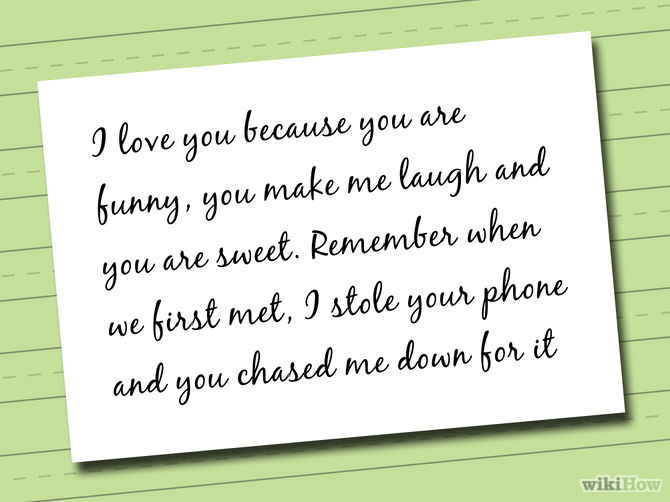 I love you because you are
funny, you make me laugh and
you are sweet. Remember when
we first met, I stole your phone
and you chased me down for it
wikiHow